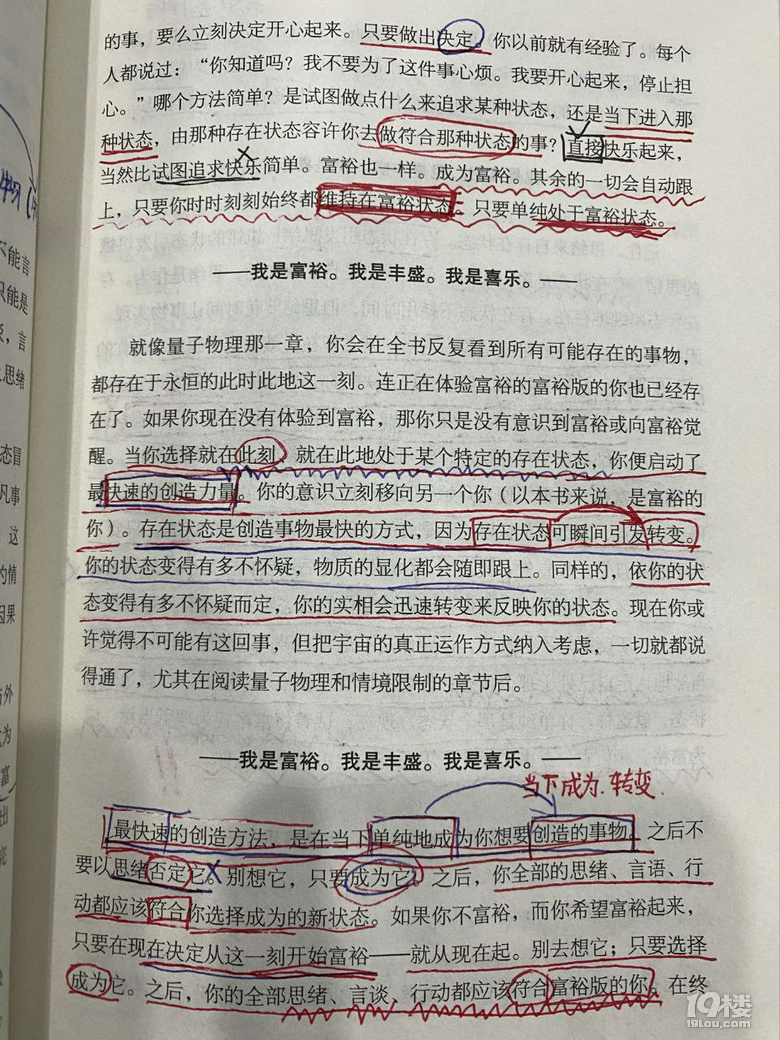 的事，要么立刻决定开心起来。只要做出决定。你以前就有经验了。每个
人都说过：“你知道吗？我不要为了这件事心烦。我要开心起来，停止担
心。”哪个方法简单？是试图做点什么来追求某种状态，还是当下进入那
种状态，由那种存在状态容许你去做符合那种状态的事？直接快乐起来，
当然比试图追求快乐简单。富裕也一样。成为富裕。其余的一切会自动跟
上，只要你时时刻刻始终都维持在富裕状态。只要单纯处于富裕状态。
——我是富裕。我是丰盛。我是喜乐。——
就像量子物理那一章，你会在全书反复看到所有可能存在的事物，
都存在于永恒的此时此地这一刻。连正在体验富裕的富裕版的你也已经存
在了。如果你现在没有体验到富裕，那你只是没有意识到富裕或向富裕觉
醒。当你选择就在此刻、就在此地处于某个特定的存在状态，你便启动了
最快速的创造力量。你的意识立刻移向另一个你（以本书来说，是富裕的
你）。存在状态是创造事物最快的方式，因为存在状态可瞬间引发转变。
你的状态变得有多不怀疑，物质的显化都会随即跟上。同样的，依你的状
态变得有多不怀疑而定，你的实相会迅速转变来反映你的状态。现在你或
许觉得不可能有这回事，但把宇宙的真正运作方式纳入考虑，一切就都说
得通了，尤其在阅读量子物理和情境限制的章节后。
——我是富裕。我是丰盛。我是喜乐。——
当下成为.转变
最快速的创造方法，是在当下单纯地成为你想要创造的事物。之后不
要以思绪否定它。别想它，只要成为它。之后，你全部的思绪、言语、行
动都应该符合你选择成为的新状态。如果你不富裕，而你希望富裕起来，
只要在现在决定从这一刻开始富裕——就从现在起。别去想它；只要选择
成为它。之后，你的全部思绪、言谈、行动都应该符合富裕版的你。在终
不能言
只能是
言
思绪
态冒
凡事
这
的情
因果
与外
成为
富
出
19楼
19lou.com